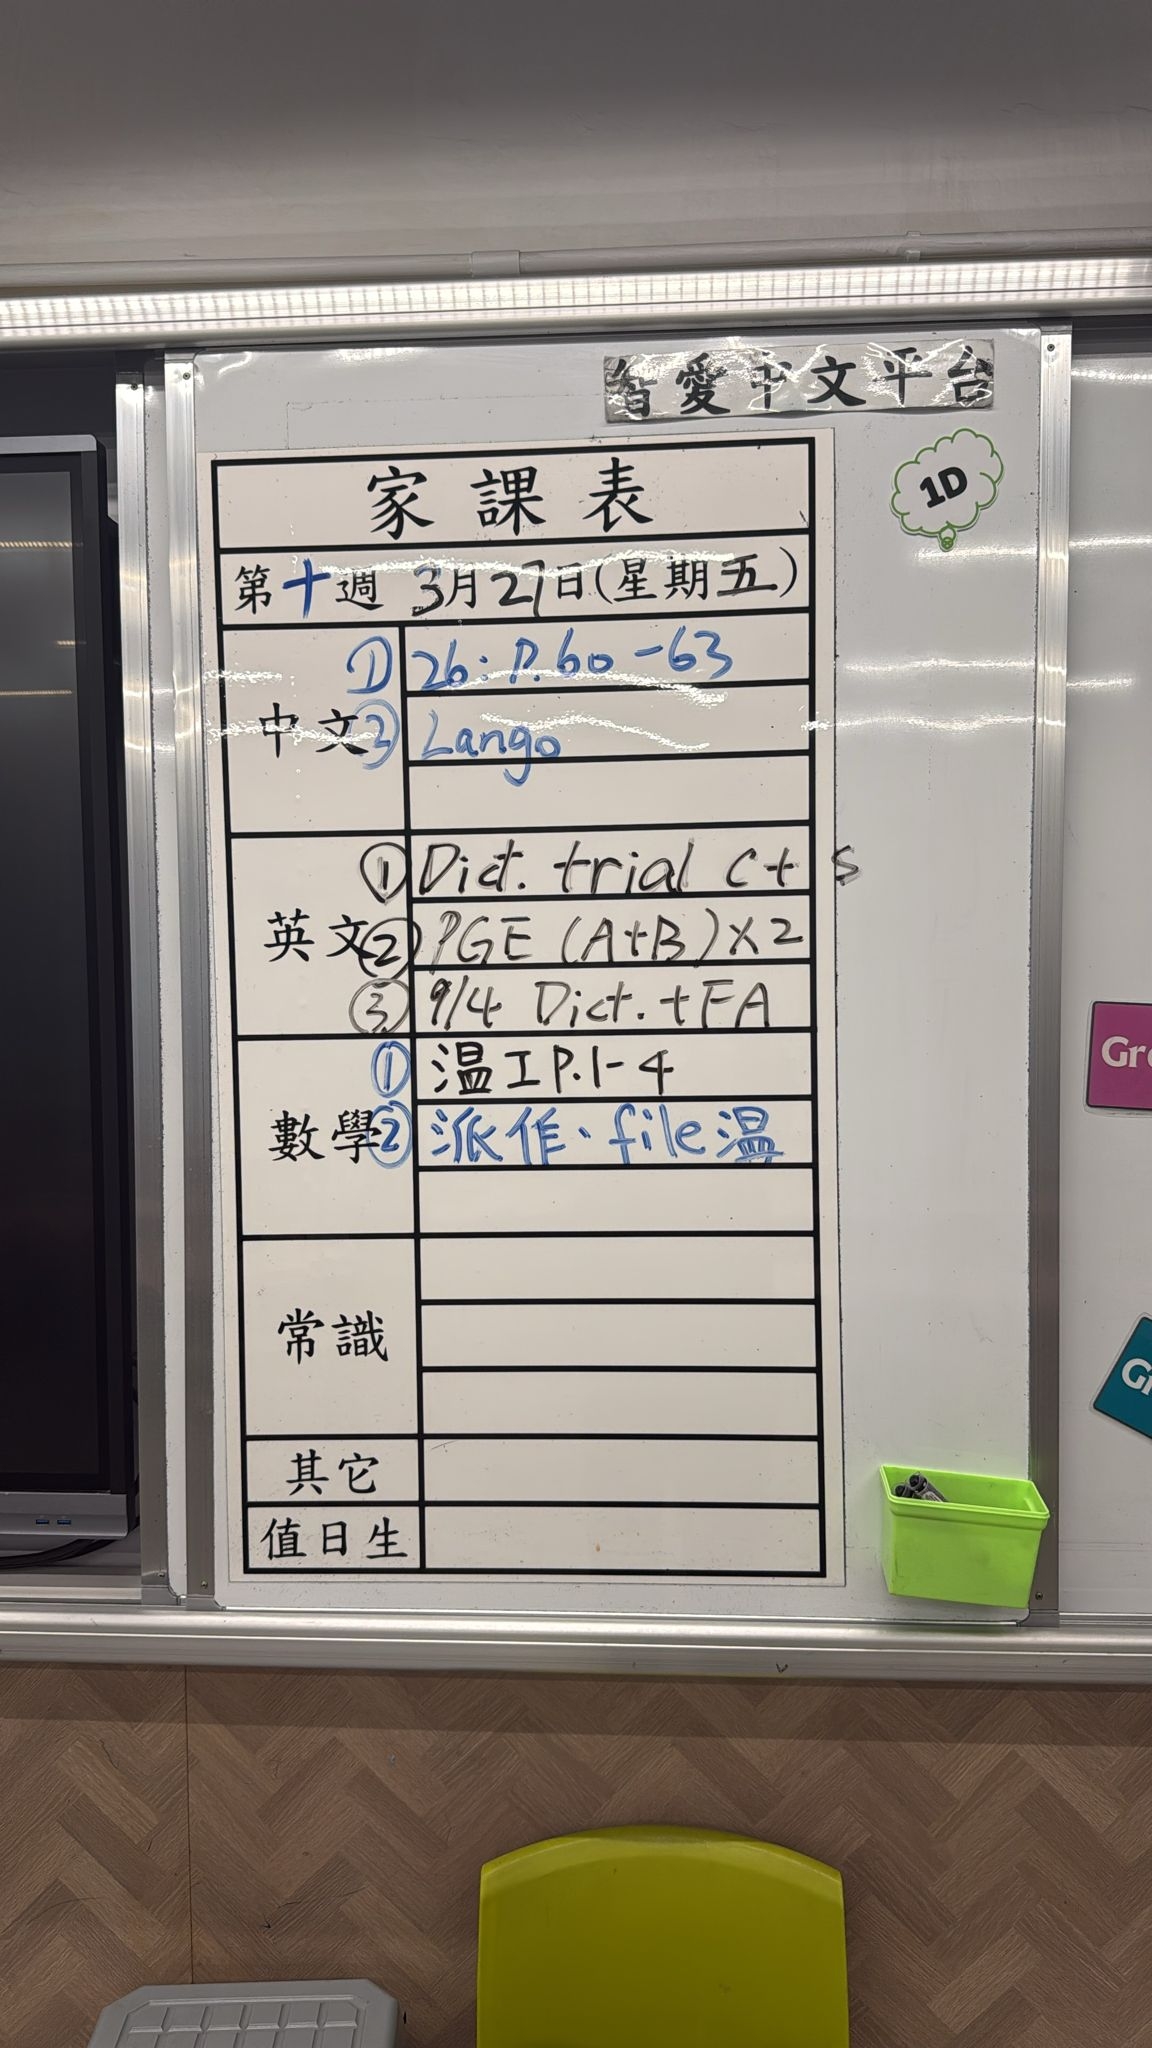 智愛中文平台
1D
家課表
第十週 3月27日(星期五)
中文
① 26: P.60-63
② Lango
英文
① Dict. trial c+s
② PGE (A+B)x2
③ 9/4 Dict.+FA
數學
① 溫工P.1-4
② 派作、file溫
常識
其它
值日生